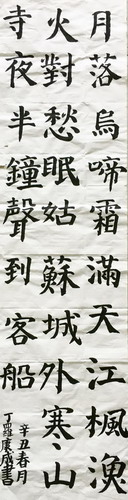 月落烏啼霜滿天江楓漁
火對愁眠姑蘇城外寒山
寺夜半鐘聲到客船
辛丑春月
丁羅書